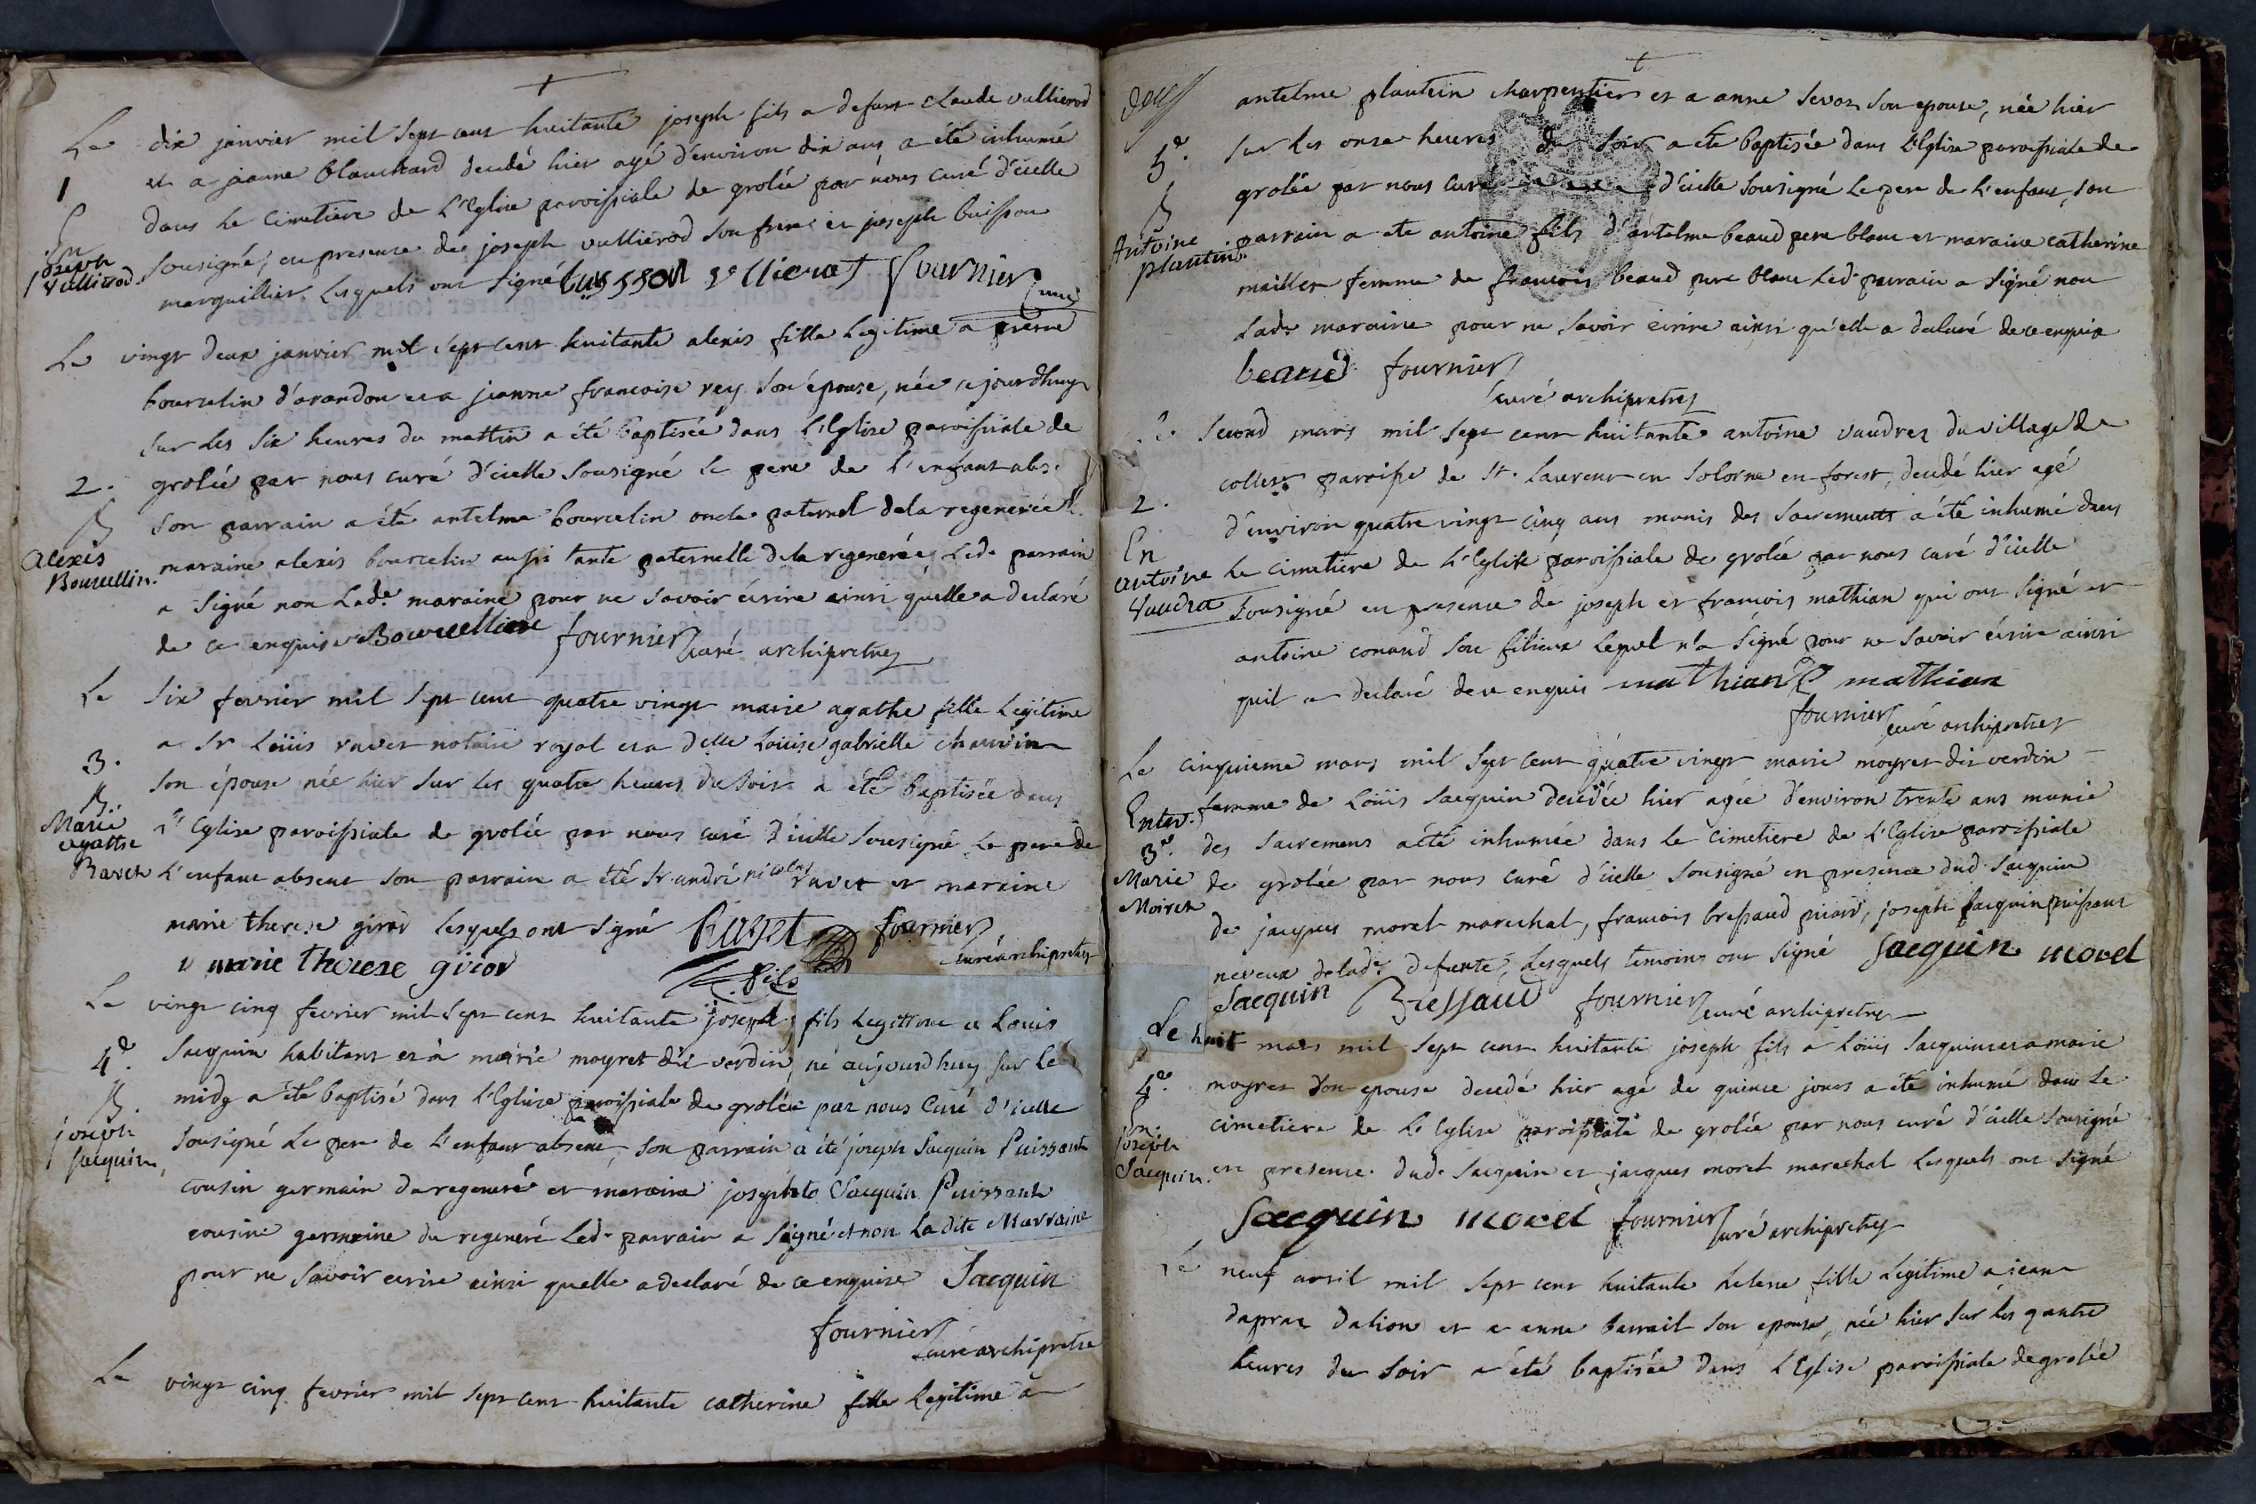 Le dix janvier mil sept cent huitante joseph fils a defunt claude vullierod
1
et a jeanne blanchard decedé hier agé d'environ dix ans a été inhumé
En
dans le Cimetiere de L'Eglise paroissiale de grolée par nous curé d'icelle
joseph
Vullierod
Sousigné, en presence de joseph vullierod son frere et joseph buisson
marguillier Lesquels ont signé bussson vullierat fournier curé
Le vingt deux janvier mil sept cent huitante alexis fille legitime a pierre
bourcelin d'arandon et a jeanne francoise rey son épouse, née ce jourdhuy
sur les six heures du mattin a été baptisée dans L'Eglise paroissiale de
2.
grolée par nous curé d'icelle sousigné le pere de l'enfant abs.
B
son parrain a été antelme bourcelin oncle paternel de la regenerée
Alexis
Bourcellin.
maraine alexis bourcelin aussi tante paternelle de la regenerée, Led. parrain
a signé non Lad.e maraine pour ne savoir écrire ainsi quelle a declaré
de ce enquise Bourcellin fournier curé archipretre
Le six fevrier mil sept cent quatre vingt marie agathe fille legitime
a Sr Loüis ravet notaire royal et a delle Loüise gabrielle chauvin
3.
son épouse née hier sur les quatre heures du soir a été baptisée dans
B.
Marie
agathe
Ravet
L'Eglise paroissiale de grolée par nous curé d'icelle sousigné le pere de
L'enfant absent son parrain a été Sr andré nicolas ravet et maraine
marie therese girod lesquels ont signé Ravet fils fournier
curé archipretre
marie therese girod
Le vingt cinq fevrier mil sept cent huitante joseph fils legittime a Louis
4e.
Jacquin habitant et à marie moyret dit verdin, né aujourdhuy sur le
B.
midy a été baptisé dans L'Eglise paroissiale de grolée par nous Curé d'icelle
joseph
jacquin,
sousigné Le pere de L'enfant absent, son parrain a été joseph Jacquin Puissant
cousin germain du regeneré et maraine josephte Jacquin Puissant
cousine germaine du regeneré Led. parrain a Signé et non la dite Marraine
pour ne savoir ecrire ainsi quelle a declaré de ce enquise Jacquin
fournier
curé archipretre
Le vingt cinq fevrier mil sept cent huitante catherine fille legitime a
antelme plantin charpentier et a anne son epouse, née hier
5e.
sur les onze heures du soir a été baptisée dans L'Eglise paroissiale de
B
grolée par nous curé d'icelle sousigné Le pere de L'enfant, son
Antoine
plantin
parrain a ete antoine fils d'antelme beaud pere blanc et maraine catherine
maillet femme de francois beaud pere blanc Led. parrain a signé non
Lad.e maraine pour ne savoir ecrire ainsi qu'elle a declaré de ce enquise
beaud fournier
curé archipretre
Le second mars mil sept cent huitante antoine vaudrez du village de
2.
paroisse de St. Laurent en solorne en forest, decedé hier agé
En
d'environ quatre vingt cinq ans munis des sacrements a été inhumé dans
antoine
Vaudra
Le Cimetiere de L'Eglise paroissiale de grolée par nous curé d'icelle
Sousigné en presence de joseph et francois mathian qui ont signé et
antoine conand son filieux Lequel n'a signé pour ne savoir écrire ainsi
quil a declaré de ce enquis mathian mathian
fournier curé archipretre
Le cinquieme mars mil sept cent quatre vingt marie moyret dit verdin
Enter.
femme de Loüis Jacquin decedée hier agée d'environ trente ans munie
3e.
des sacremens a été inhumée dans le cimetiere de L'Eglise paroissiale
Marie
Moiret
de grolée par nous curé d'icelle sousigné en presence dud. Jacquin
de jacques morel marechal, francois bressaud, joseph jacquin puissant
neveux de lad.e defunte, Lesquels temoins ont signé Jacquin morel
Jacquin Bressaud fournier curé archipretre
Le huit mars mil sept cent huitante joseph fils a Loüis Jacquin et a marie
4e.
moyret son epouse decedé hier agé de quinze jours a été inhumé dans le
En.
joseph
Jacquin.
cimetiere de L'Eglise paroissiale de grolée par nous curé d'icelle sousigné
en presence dud. Jacquin et jacques morel marechal Lesquels ont signé
Jacquin morel fournier curé archipretre
Le neuf avril mil sept cent huitante helene fille legitime a jean
et a anne son epouse, née hier sur les quatre
heures du soir a été baptisée dans L'Eglise paroissiale de grolée